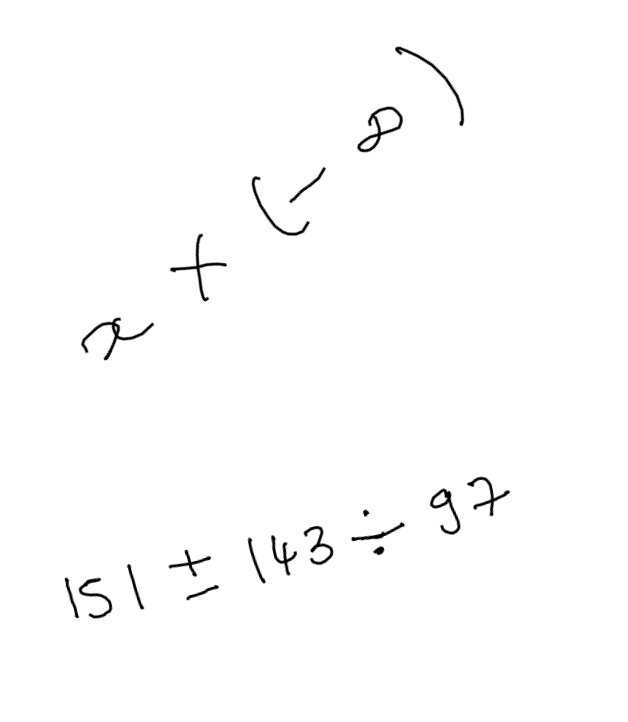 x + (- 8)
151 ± 143 ÷ 97